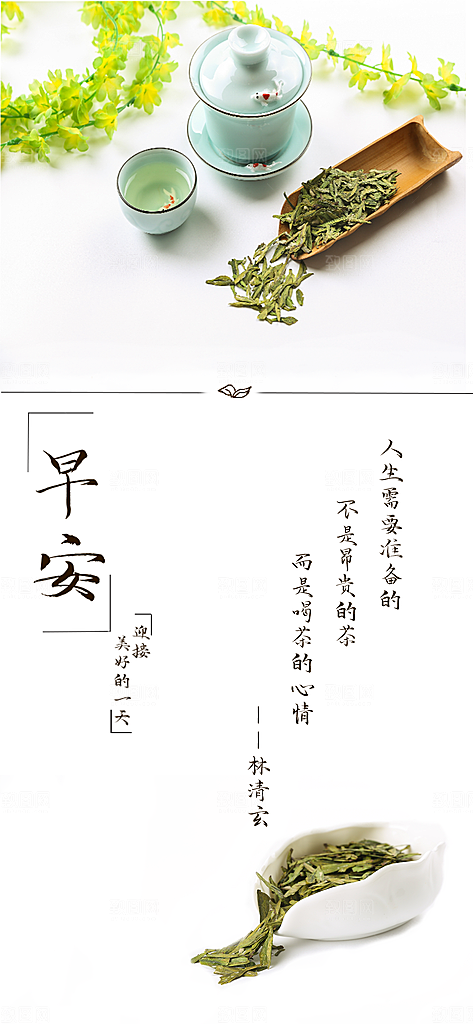 早安
迎接
美好的一天
人生需要准备的
不是昂贵的茶
而是喝茶的心情
——林清玄